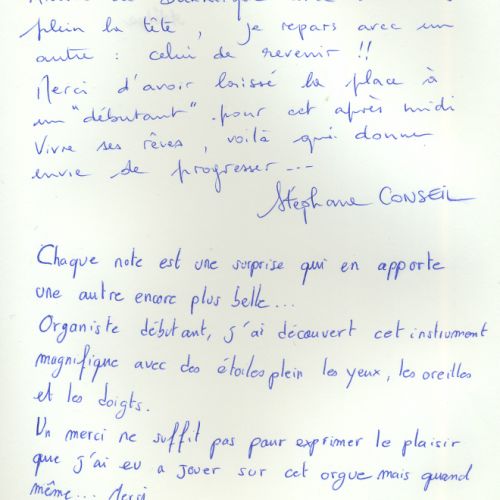 plein la tête, je repars avec un
autre : celui de revenir !!
Merci d'avoir laissé la place à
un "débutant" pour cet après midi
Vivre ses rêves, voilà qui donne
envie de progresser ...
Stéphane CONSEIL
Chaque note est une surprise qui en apporte
une autre encore plus belle...
Organiste débutant, j'ai découvert cet instrument
magnifique avec des étoiles plein les yeux, les oreilles
et les doigts.
Un merci ne suffit pas pour exprimer le plaisir
que j'ai eu a jouer sur cet orgue mais quand
même... Merci